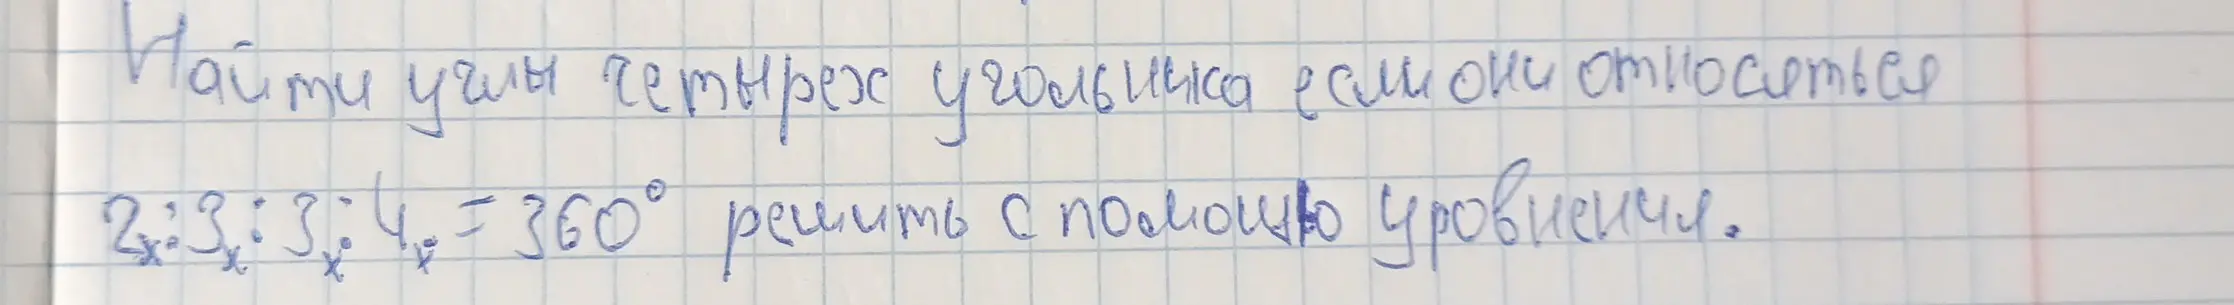 Найти углы четырех угольника если они относяться
2x:3x:3x:4x=360° решить с помощью уровнения.